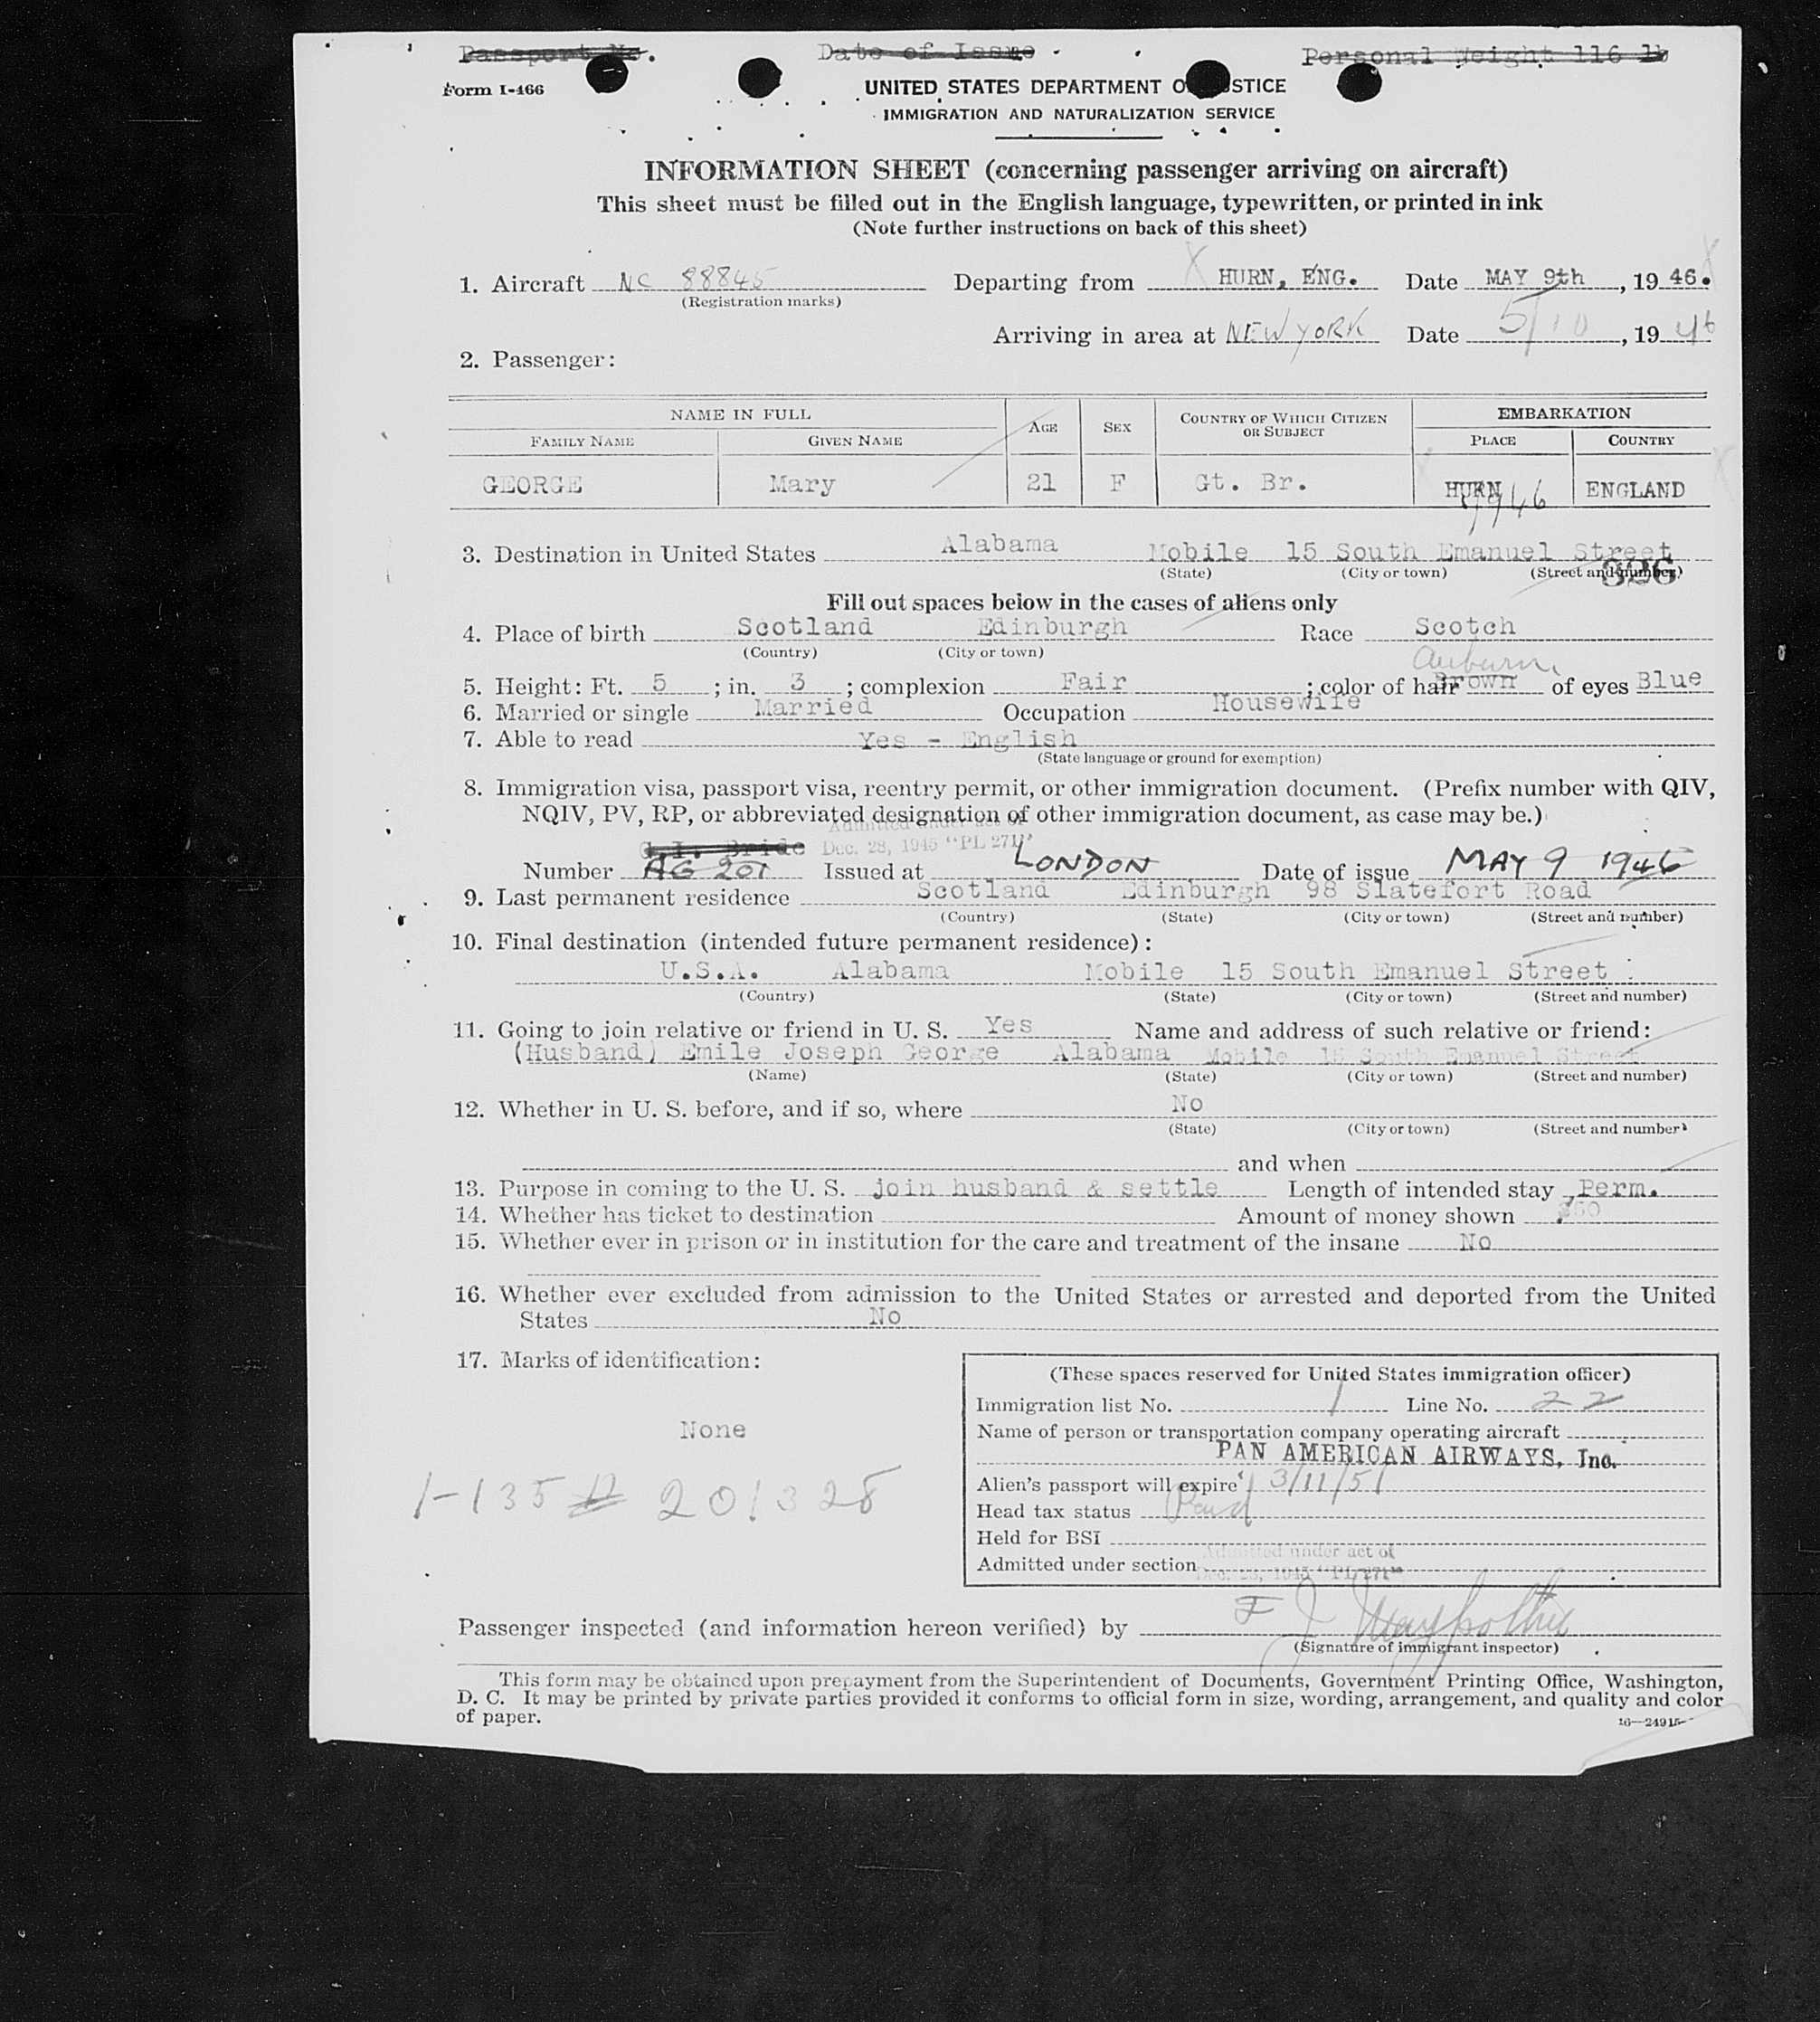 Passport No. Date of Issue Personal Weight 116 lb
Form I-466
UNITED STATES DEPARTMENT O STICE
IMMIGRATION AND NATURALIZATION SERVICE
INFORMATION SHEET (concerning passenger arriving on aircraft)
This sheet must be filled out in the English language, typewritten, or printed in ink
(Note further instructions on back of this sheet)
1. Aircraft NC 88845 Departing from HURN, ENG. Date MAY 9th, 1946.
(Registration marks)
Arriving in area at NEW YORK Date 5/10, 1946
2. Passenger:
NAME IN FULL AGE SEX COUNTRY OF WHICH CITIZEN OR SUBJECT EMBARKATION
FAMILY NAME GIVEN NAME PLACE COUNTRY
GEORGE Mary 21 F Gt. Br. HURN ENGLAND
3. Destination in United States Alabama Mobile 15 South Emanuel Street
(State) (City or town) (Street and number)
326
Fill out spaces below in the cases of aliens only
4. Place of birth Scotland Edinburgh Race Scotch
(Country) (City or town)
Auburn
5. Height: Ft. 5; in. 3; complexion Fair; color of hair Brown of eyes Blue
6. Married or single Married Occupation Housewife
7. Able to read Yes - English
(State language or ground for exemption)
8. Immigration visa, passport visa, reentry permit, or other immigration document. (Prefix number with QIV,
NQIV, PV, RP, or abbreviated designation of other immigration document, as case may be.)
Admitted under act of
G.I. Bride Dec. 28, 1945 "PL 271"
Number AG 201 Issued at LONDON Date of issue MAY 9 1946
9. Last permanent residence Scotland Edinburgh 98 Slatefort Road
(Country) (State) (City or town) (Street and number)
10. Final destination (intended future permanent residence):
U.S.A. Alabama Mobile 15 South Emanuel Street
(Country) (State) (City or town) (Street and number)
11. Going to join relative or friend in U. S. Yes Name and address of such relative or friend:
(Husband) Emile Joseph George Alabama Mobile 15 South Emanuel Street
(Name) (State) (City or town) (Street and number)
12. Whether in U. S. before, and if so, where No
(State) (City or town) (Street and number)
and when
13. Purpose in coming to the U. S. join husband & settle Length of intended stay Perm.
14. Whether has ticket to destination Amount of money shown
15. Whether ever in prison or in institution for the care and treatment of the insane No
16. Whether ever excluded from admission to the United States or arrested and deported from the United
States No
17. Marks of identification:
None
1-135 201328
(These spaces reserved for United States immigration officer)
Immigration list No. 1 Line No. 22
Name of person or transportation company operating aircraft
PAN AMERICAN AIRWAYS, Inc.
Alien's passport will expire 3/11/51
Head tax status Paid
Held for BSI
Admitted under act of
Admitted under section Dec. 28, 1945 "PL 271"
Passenger inspected (and information hereon verified) by
(Signature of immigrant inspector)
This form may be obtained upon prepayment from the Superintendent of Documents, Government Printing Office, Washington,
D. C. It may be printed by private parties provided it conforms to official form in size, wording, arrangement, and quality and color
of paper.
16—24915-